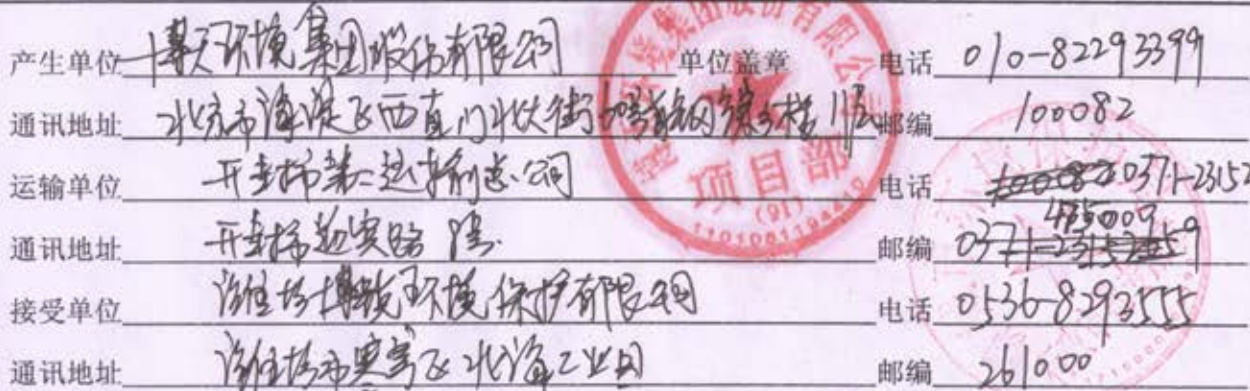 产生单位 博天环境集团股份有限公司 单位盖章 电话 010-82293399
通讯地址 北京市海淀区西直门北大街 号 楼11层 邮编 100082
运输单位 开封市第二运输总公司 电话 0371-23152
通讯地址 开封市 路 8号 邮编 475009
接受单位 潍坊博锐环境保护有限公司 电话 0536-8293555
通讯地址 潍坊市寒亭区北海工业园 邮编 261000
集团股份有限公司
项目部
(91)
1101081194410